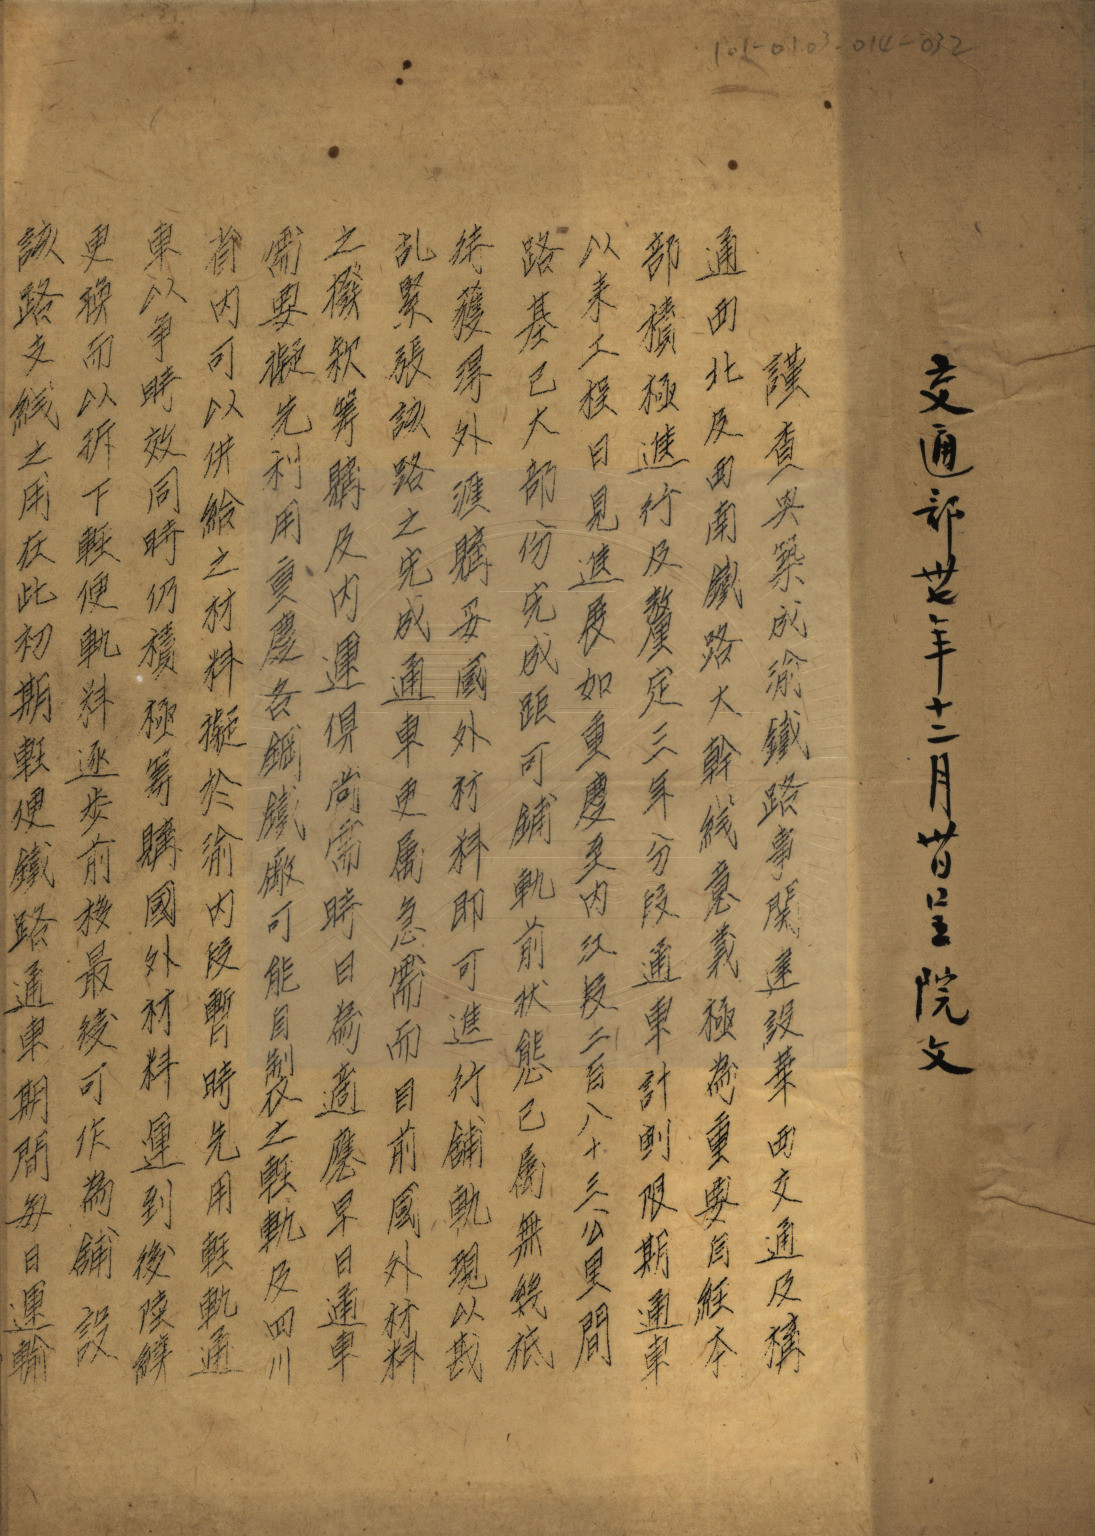 101-0103-014-032
交通部廿七年十二月廿日呈院文
謹查興築成渝鐵路事關建設華西交通及構
通西北及西南鐵路大幹线意義極為重要自經本
部積極進行及釐定三年分段通車計劃限期通車
以来工程日見進展如重慶至内江段二百八十三公里間
路基已大部份完成距可鋪軌前狀態已屬無幾祇
待獲得外滙購妥國外材料即可進行鋪軌現以戡
乱緊張該路之完成通車更屬急需而目前國外材料
之撥款筹購及内運俱尚需時日為適應早日通車
需要擬先利用重慶各鋼鐵廠可能自製之軽軌及四川
省内可以供給之材料擬於渝内段暫時先用軽軌通
車以爭時效同時仍積極筹購國外材料運到後陸續
更换而以拆下軽便軌料逐步前移最後可作為鋪設
該路支线之用在此初期軽便鐵路通車期間每日運輸